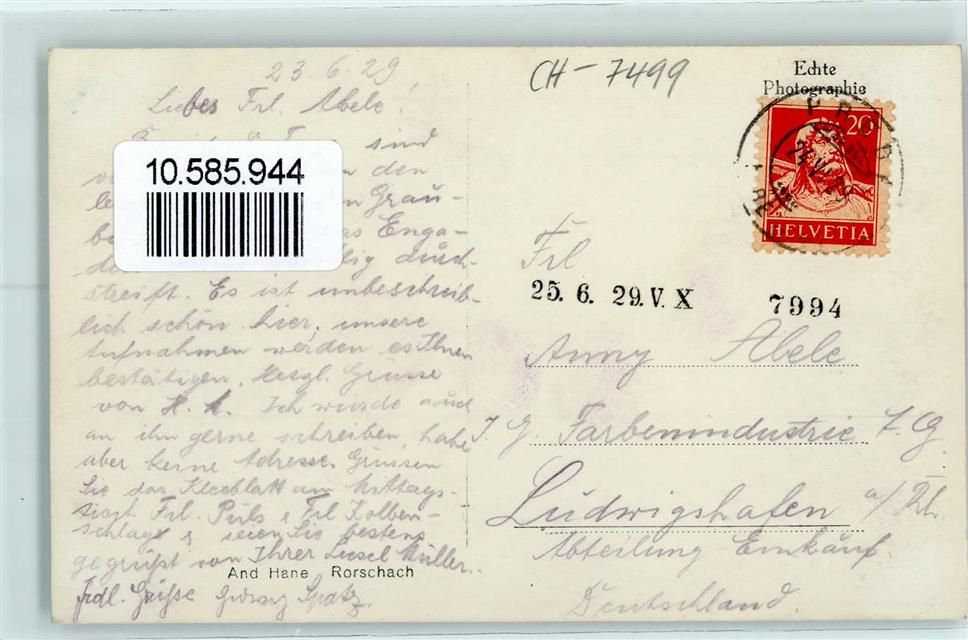 23.6.29
CH-7499
Echte
Photographie
Liebes Frl. Abele!
sind
den
Grau-
Enga-
durch-
streift. Es ist unbeschreib-
lich schön hier, unsere
Aufnahmen werden es Ihnen
bestätigen. Herzl. Grüsse
von H. A. Ich würde auch
an ihn gerne schreiben, habe
aber keine Adresse. Grüssen
Sie das Kleeblatt am Mittags-
tisch Frl. Puls & Frl. Kolben-
schlag & seien Sie bestens
gegrüßt von Ihrer Liesel Müller.
And Hane Rorschach
Frdl. Grüße Georg Spatz.
10.585.944
20
HELVETIA
Frl
25. 6. 29. V. X 7994
Anny Abele
I. G. Farbenindustrie A. G.
Ludwigshafen a/Rh.
Abteilung Einkauf.
Deutschland.